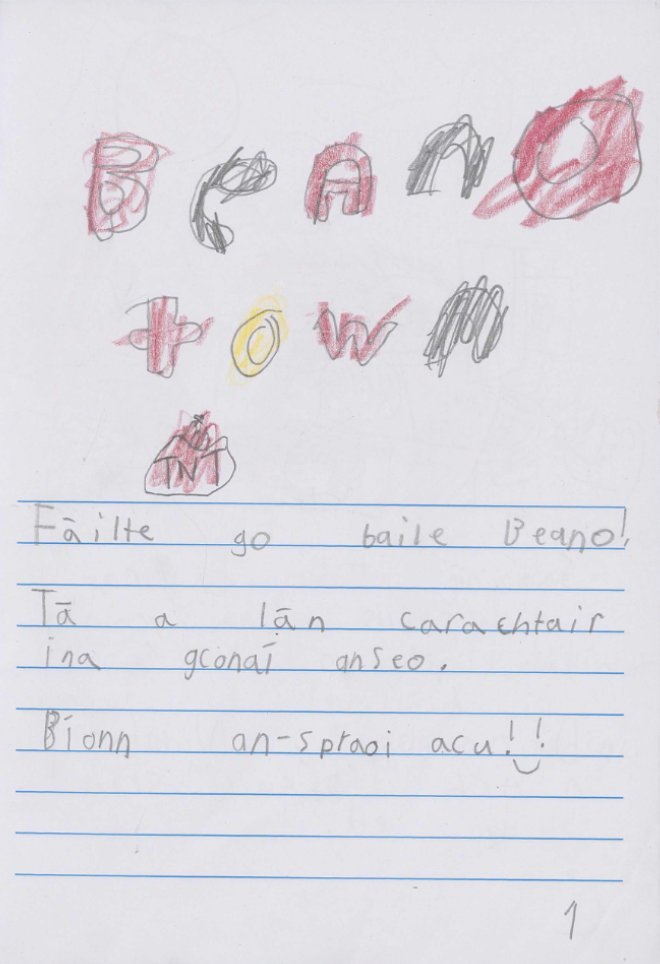 BeAnO
town
TNT
Fāilte go baile Beano!
Tā a lān carachtair
ina gconaí anseo.
Bíonn an-spraoi acu!!
1